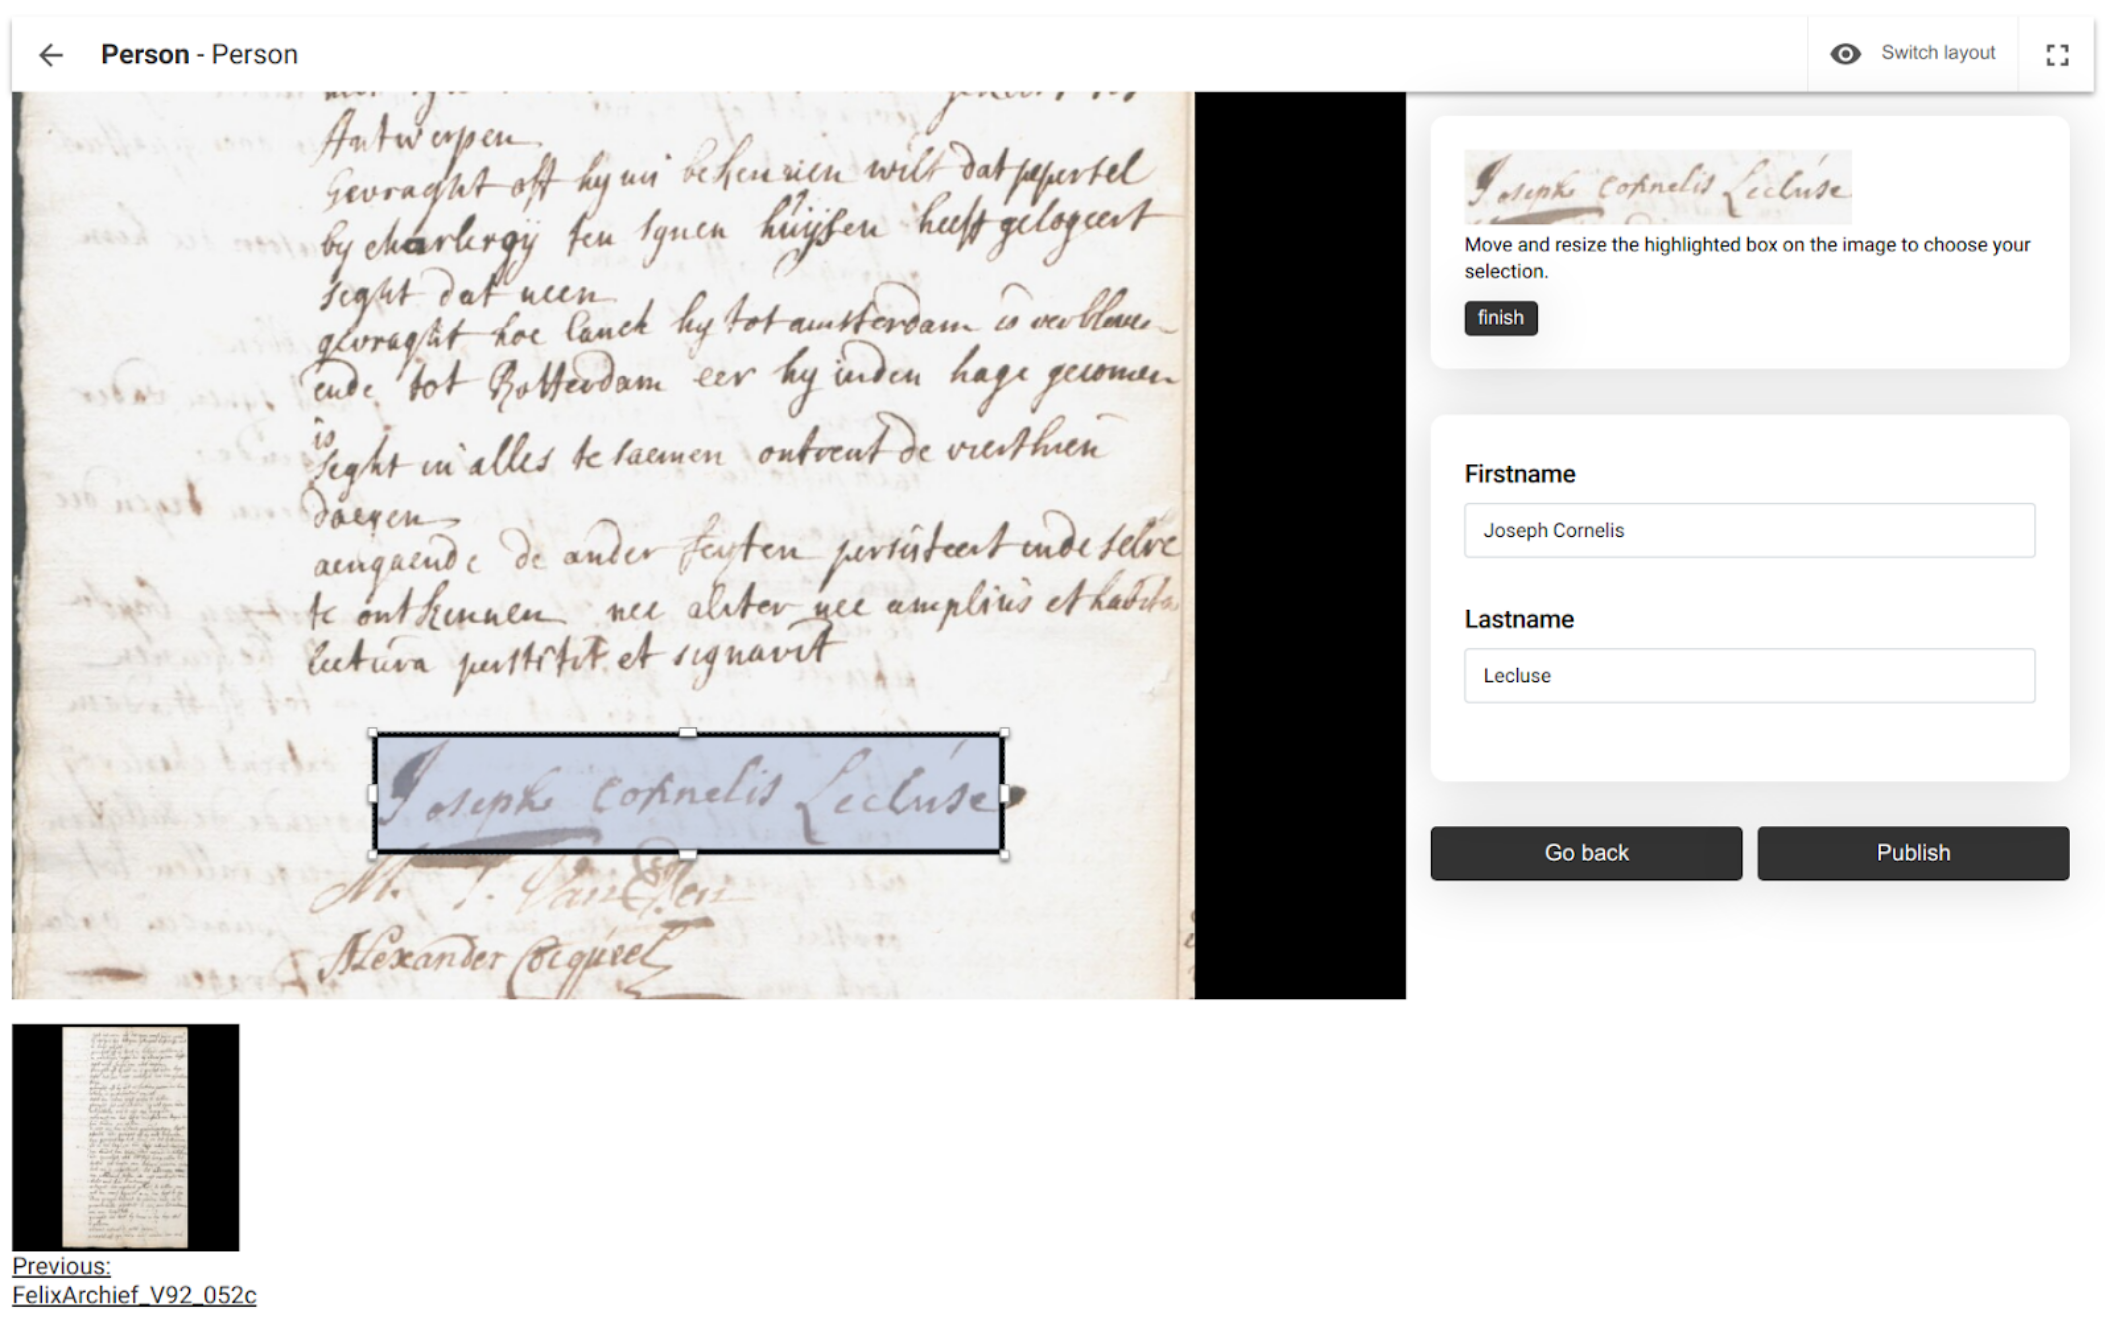 Person - Person
Switch layout
Antwerpen
Gevraght off hy niet bekennen wilt dat
by charleroy ten synen huijsen heeft gelogeert
seght dat neen
gevraght hoe lanck hy tot amsterdam is verbleven
ende tot Rotterdam eer hy inden hage gecomen
is
seght in alles te saemen ontrent de vierthien
daegen
aengaende de ander feyten persisteert inde selve
te ontkennen nec aliter nec amplius et habita
lectura perstitit et signavit
Joseph Cornelis Lecluse
Alexander Cocqueel
Joseph Cornelis Lecluse
Move and resize the highlighted box on the image to choose your
selection.
finish
Firstname
Joseph Cornelis
Lastname
Lecluse
Go back
Publish
Previous:
FelixArchief_V92_052c